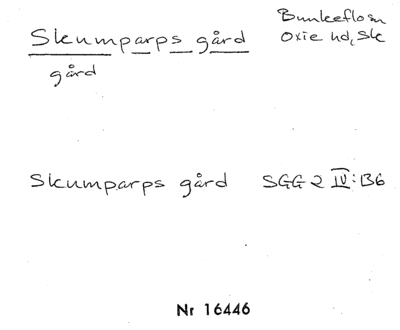 Skumparps gård
Bunkeflosn
Oxie hd, Sk
gård
Skumparps gård SGG 2 IV:B6
Nr 16446